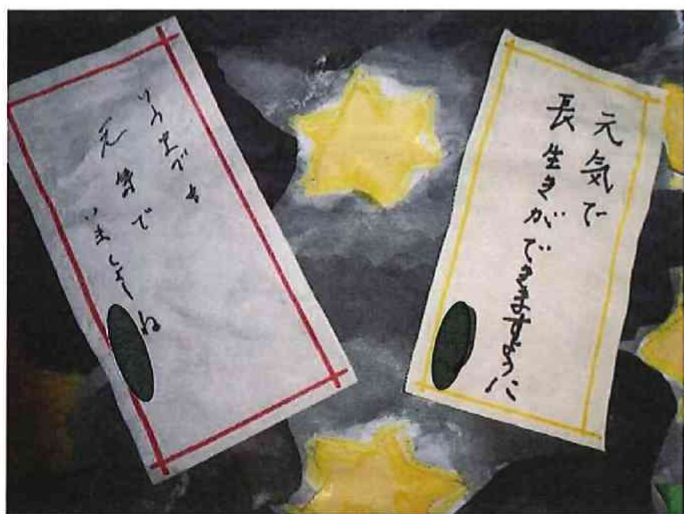 いつまでも
元気で
いましょうね
元気で
長生きができますように